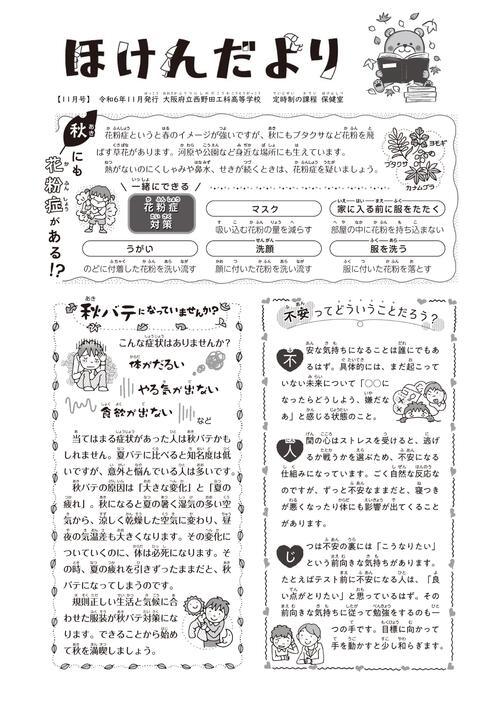 ほけんだより
【11月号】 令和6年11月発行 大阪府立西野田工科高等学校 定時制の課程 保健室
秋にも花粉症がある!?
花粉症というと春のイメージが強いですが、秋にもブタクサなど花粉を飛
ばす草花があります。河原や公園など身近な場所にも生えています。
熱がないのにくしゃみや鼻水、せきが続くときは、花粉症を疑いましょう。
ヨモギ
ブタクサ
カナムグラ
一緒にできる
花粉症
対策
マスク
吸い込む花粉の量を減らす
家に入る前に服をたたく
部屋の中に花粉を持ち込まない
うがい
のどに付着した花粉を洗い流す
洗顔
顔に付いた花粉を洗い流す
服を洗う
服に付いた花粉を落とす
秋バテになっていませんか?
こんな症状はありませんか?
体がだるい
やる気が出ない
食欲が出ない
など
当てはまる症状があった人は秋バテかも
しれません。夏バテに比べると知名度は低
いですが、意外と悩んでいる人は多いです。
秋バテの原因は「大きな変化」と「夏の
疲れ」。秋になると夏の暑く湿気の多い空
気から、涼しく乾燥した空気に変わり、昼
夜の気温差も大きくなります。その変化に
ついていくのに、体は必死になります。そ
の時、夏の疲れを引きずったままだと、秋
バテになってしまうのです。
規則正しい生活と気候に合
わせた服装が秋バテ対策にな
ります。できることから始め
て秋を満喫しましょう。
不安ってどういうことだろう?
不安な気持ちになることは誰にでもあ
るはず。具体的には、まだ起こって
いない未来について「○○に
なったらどうしよう、嫌だな
あ」と感じる状態のこと。
人間の心はストレスを受けると、逃げ
るか戦うかを選ぶため、不安になる
仕組みになっています。ごく自然な反応な
のですが、ずっと不安なままだと、寝つき
が悪くなったり体にも影響が出てくること
があります。
じつは不安の裏には「こうなりたい」
という前向きな気持ちがあります。
たとえばテスト前に不安になる人は、「良
い点がとりたい」と思っているはず。その
前向きな気持ちに従って勉強をするのも一
つの手です。目標に向かって
手を動かすと少し和らぎます。